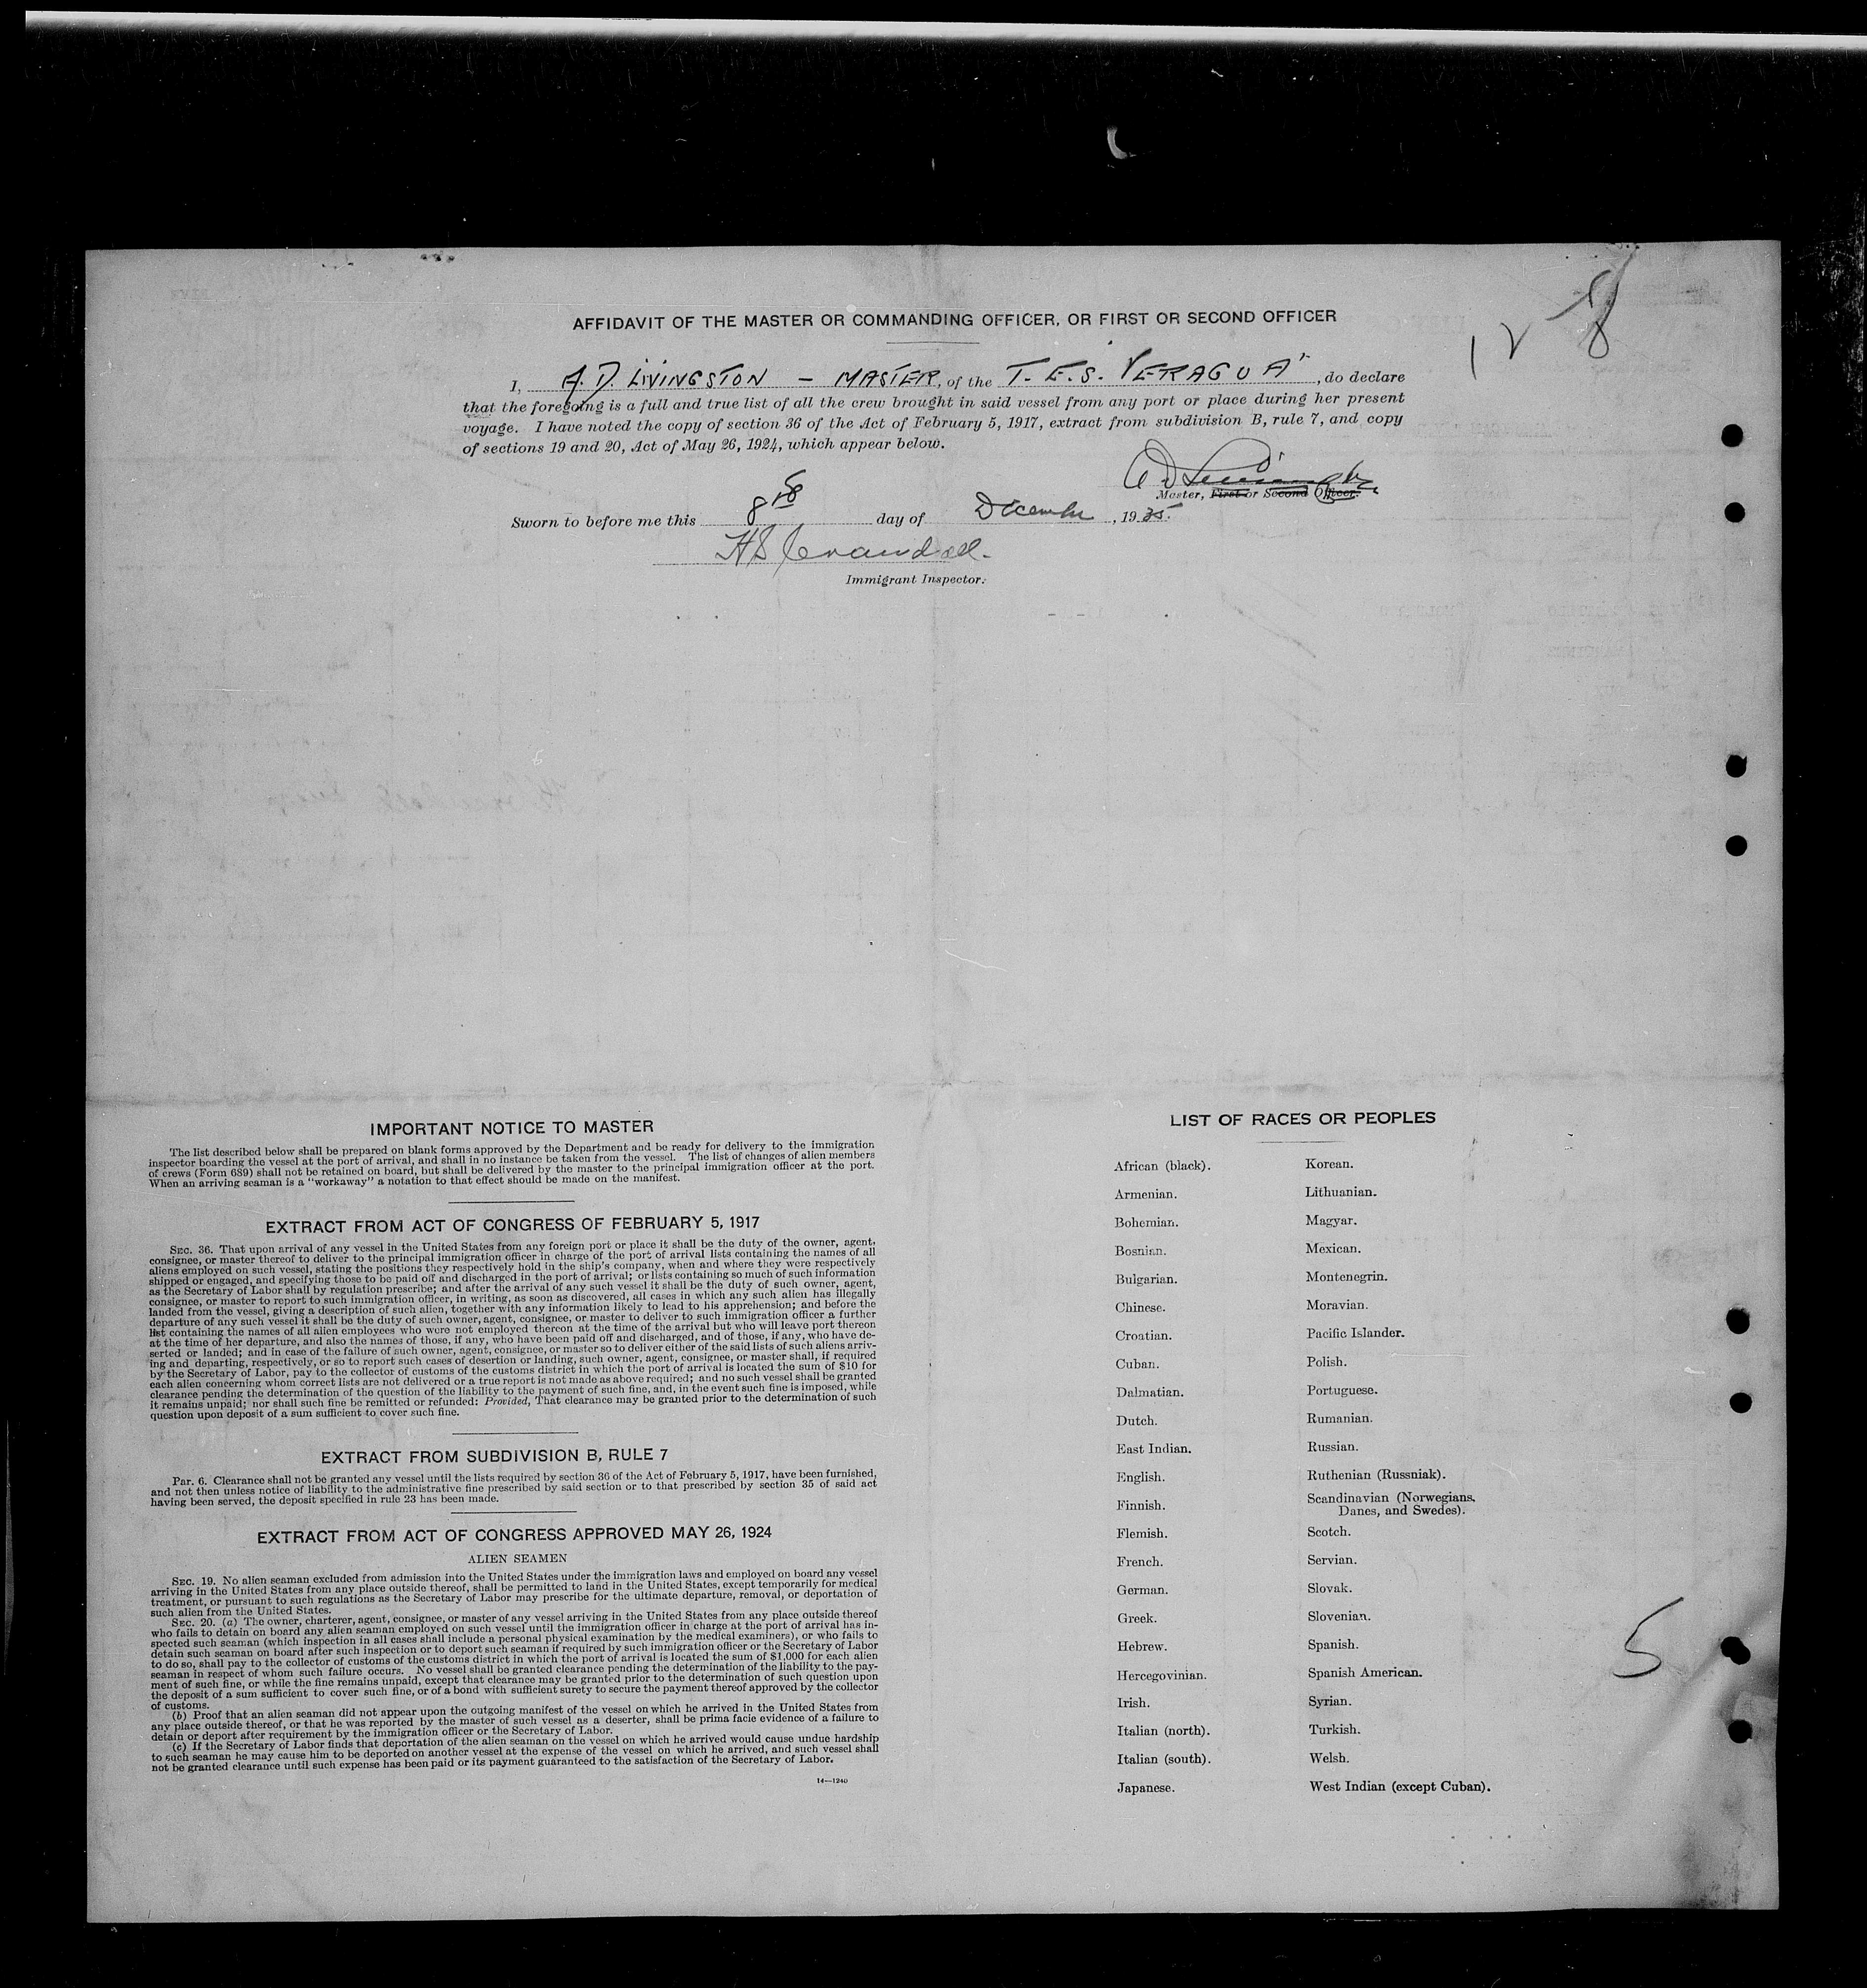 AFFIDAVIT OF THE MASTER OR COMMANDING OFFICER, OR FIRST OR SECOND OFFICER
12 8
I, A. D. LIVINGSTON – MASTER, of the T. E. S. "VERAGUA", do declare
that the foregoing is a full and true list of all the crew brought in said vessel from any port or place during her present
voyage. I have noted the copy of section 36 of the Act of February 5, 1917, extract from subdivision B, rule 7, and copy
of sections 19 and 20, Act of May 26, 1924, which appear below.
A D Livingston
Master, First or Second Officer.
Sworn to before me this 8th day of December, 1935.
H S Crandall.
Immigrant Inspector.
IMPORTANT NOTICE TO MASTER
The list described below shall be prepared on blank forms approved by the Department and be ready for delivery to the immigration
inspector boarding the vessel at the port of arrival, and shall in no instance be taken from the vessel. The list of changes of alien members
of crews (Form 689) shall not be retained on board, but shall be delivered by the master to the principal immigration officer at the port.
When an arriving seaman is a "workaway" a notation to that effect should be made on the manifest.
EXTRACT FROM ACT OF CONGRESS OF FEBRUARY 5, 1917
SEC. 36. That upon arrival of any vessel in the United States from any foreign port or place it shall be the duty of the owner, agent,
consignee, or master thereof to deliver to the principal immigration officer in charge of the port of arrival lists containing the names of all
aliens employed on such vessel, stating the positions they respectively hold in the ship's company, when and where they were respectively
shipped or engaged, and specifying those to be paid off and discharged in the port of arrival; or lists containing so much of such information
as the Secretary of Labor shall by regulation prescribe; and after the arrival of any such vessel it shall be the duty of such owner, agent,
consignee, or master to report to such immigration officer, in writing, as soon as discovered, all cases in which any such alien has illegally
landed from the vessel, giving a description of such alien, together with any information likely to lead to his apprehension; and before the
departure of any such vessel it shall be the duty of such owner, agent, consignee, or master to deliver to such immigration officer a further
list containing the names of all alien employees who were not employed thereon at the time of the arrival but who will leave port thereon
at the time of her departure, and also the names of those, if any, who have been paid off and discharged, and of those, if any, who have de-
serted or landed; and in case of the failure of such owner, agent, consignee, or master so to deliver either of the said lists of such aliens arriv-
ing and departing, respectively, or so to report such cases of desertion or landing, such owner, agent, consignee, or master shall, if required
by the Secretary of Labor, pay to the collector of customs of the customs district in which the port of arrival is located the sum of $10 for
each alien concerning whom correct lists are not delivered or a true report is not made as above required; and no such vessel shall be granted
clearance pending the determination of the question of the liability to the payment of such fine, and, in the event such fine is imposed, while
it remains unpaid; nor shall such fine be remitted or refunded: Provided, That clearance may be granted prior to the determination of such
question upon deposit of a sum sufficient to cover such fine.
EXTRACT FROM SUBDIVISION B, RULE 7
Par. 6. Clearance shall not be granted any vessel until the lists required by section 36 of the Act of February 5, 1917, have been furnished,
and not then unless notice of liability to the administrative fine prescribed by said section or to that prescribed by section 35 of said act
having been served, the deposit specified in rule 23 has been made.
EXTRACT FROM ACT OF CONGRESS APPROVED MAY 26, 1924
ALIEN SEAMEN
SEC. 19. No alien seaman excluded from admission into the United States under the immigration laws and employed on board any vessel
arriving in the United States from any place outside thereof, shall be permitted to land in the United States, except temporarily for medical
treatment, or pursuant to such regulations as the Secretary of Labor may prescribe for the ultimate departure, removal, or deportation of
such alien from the United States.
SEC. 20. (a) The owner, charterer, agent, consignee, or master of any vessel arriving in the United States from any place outside thereof
who fails to detain on board any alien seaman employed on such vessel until the immigration officer in charge at the port of arrival has in-
spected such seaman (which inspection in all cases shall include a personal physical examination by the medical examiners), or who fails to
detain such seaman on board after such inspection or to deport such seaman if required by such immigration officer or the Secretary of Labor
to do so, shall pay to the collector of customs of the customs district in which the port of arrival is located the sum of $1,000 for each alien
seaman in respect of whom such failure occurs. No vessel shall be granted clearance pending the determination of the liability to the pay-
ment of such fine, or while the fine remains unpaid, except that clearance may be granted prior to the determination of such question upon
the deposit of a sum sufficient to cover such fine, or of a bond with sufficient surety to secure the payment thereof approved by the collector
of customs.
(b) Proof that an alien seaman did not appear upon the outgoing manifest of the vessel on which he arrived in the United States from
any place outside thereof, or that he was reported by the master of such vessel as a deserter, shall be prima facie evidence of a failure to
detain or deport after requirement by the immigration officer or the Secretary of Labor.
(c) If the Secretary of Labor finds that deportation of the alien seaman on the vessel on which he arrived would cause undue hardship
to such seaman he may cause him to be deported on another vessel at the expense of the vessel on which he arrived, and such vessel shall
not be granted clearance until such expense has been paid or its payment guaranteed to the satisfaction of the Secretary of Labor.
14—1240
LIST OF RACES OR PEOPLES
African (black).
Armenian.
Bohemian.
Bosnian.
Bulgarian.
Chinese.
Croatian.
Cuban.
Dalmatian.
Dutch.
East Indian.
English.
Finnish.
Flemish.
French.
German.
Greek.
Hebrew.
Hercegovinian.
Irish.
Italian (north).
Italian (south).
Japanese.
Korean.
Lithuanian.
Magyar.
Mexican.
Montenegrin.
Moravian.
Pacific Islander.
Polish.
Portuguese.
Rumanian.
Russian.
Ruthenian (Russniak).
Scandinavian (Norwegians,
Danes, and Swedes).
Scotch.
Servian.
Slovak.
Slovenian.
Spanish.
Spanish American.
Syrian.
Turkish.
Welsh.
West Indian (except Cuban).
5